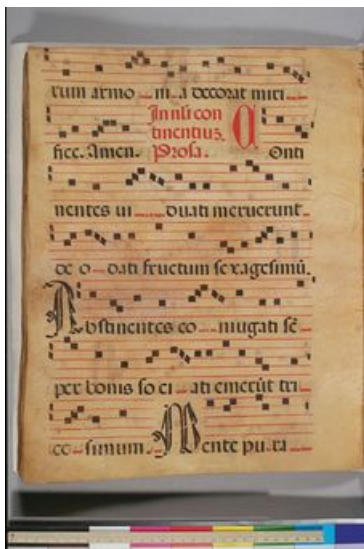 rum armo - ni a decorat miri -
fice. Amen. In nłi con
tinentiuʒ.
Prosa. C Onti
nentes ui - duati meruerunt
de o - dati fructum sexagesimū.
Abstinentes co - niugati sē
per bonis so ci - ati emerūt tri
ce - simum. Mente pu ra